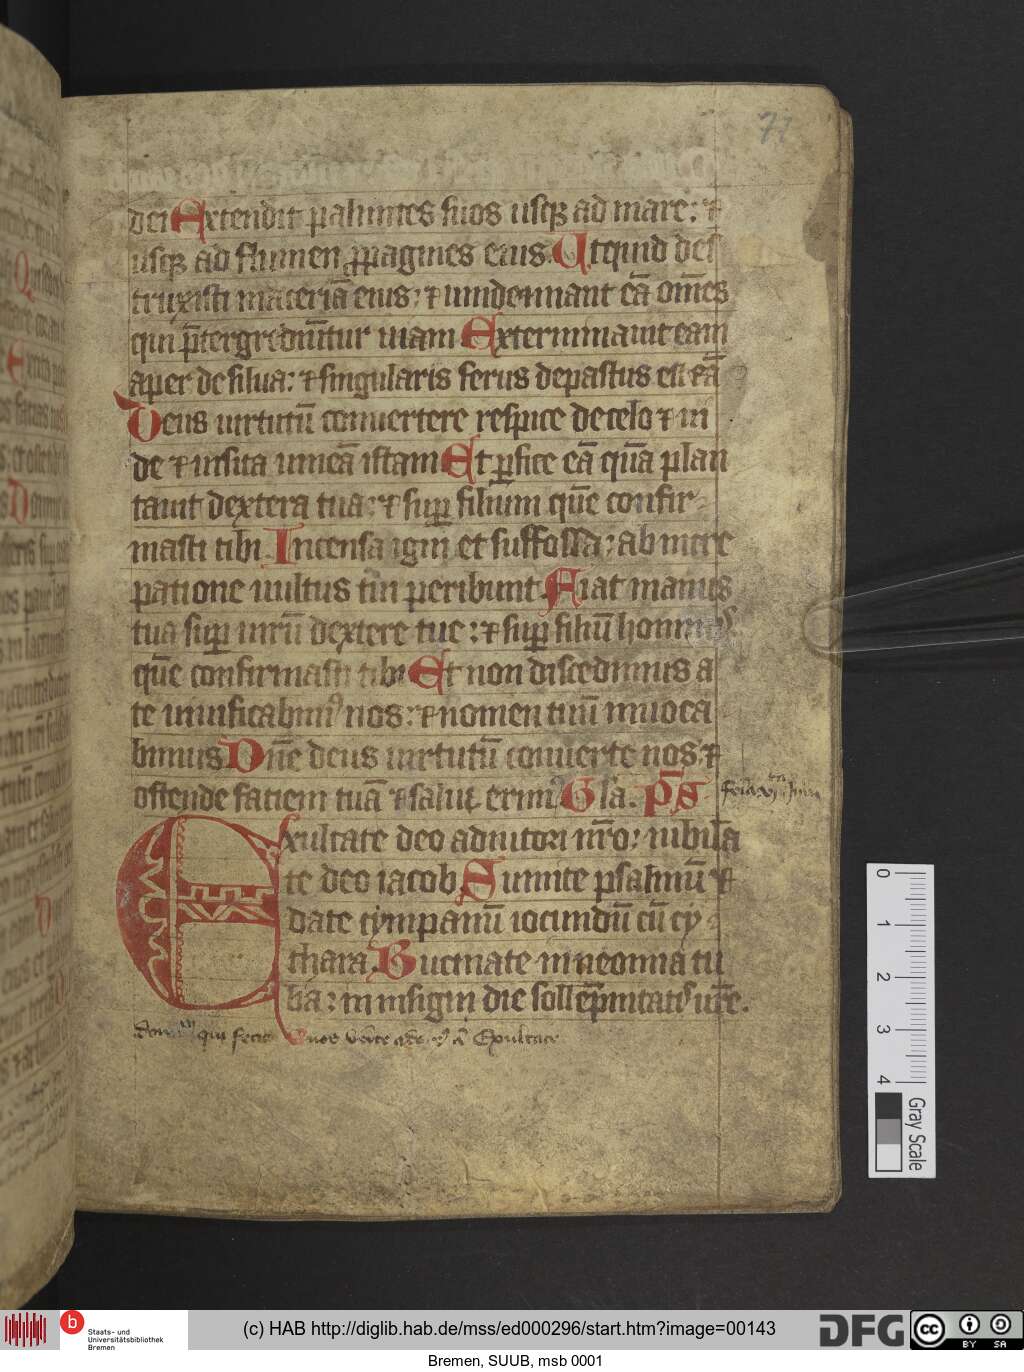 71
dei Extendit palmites suos usq; ad mare: et
usq; ad flumen ꝓpagines eius. Utquid des
truxisti maceriā eius: et vindemiant eā om̄es
qui p̄tergrediūtur viam Exterminavit eam
aper de silva: et singularis ferus depastus est eā
Deus virtutū convertere respice de celo et vi
de et visita vineā istam Et ꝑfice eā quā plan
tavit dextera tua: et suꝑ filium quē confir-
masti tibi Incensa igni et suffossa: ab incre
patione vultus tui peribunt. Fiat manus
tua suꝑ virū dextere tue: et suꝑ filiū hominis
quē confirmasti tibi Et non discedimus a
te vivificabim⁹ nos: et nomen tuū invoca
bimus Dn̄e deus virtutū converte nos: et
ostende faciem tuā et salvi erim⁹ Gl̄a. p̄s feria vi
Exultate deo adiutori nr̄o: iubila
te deo iacob. Sumite psalmū et
date tympanū iocundū cū cy-
thara. Bucinate in neomia tu
ba: in insigni die sollēpnitatis vr̄e.
qui fecit Exultate
0 1 2 3 4
Gray Scale
b
Staats- und
Universitätsbibliothek
Bremen
(c) HAB http://diglib.hab.de/mss/ed000296/start.htm?image=00143
DFG
cc BY SA
Bremen, SUUB, msb 0001